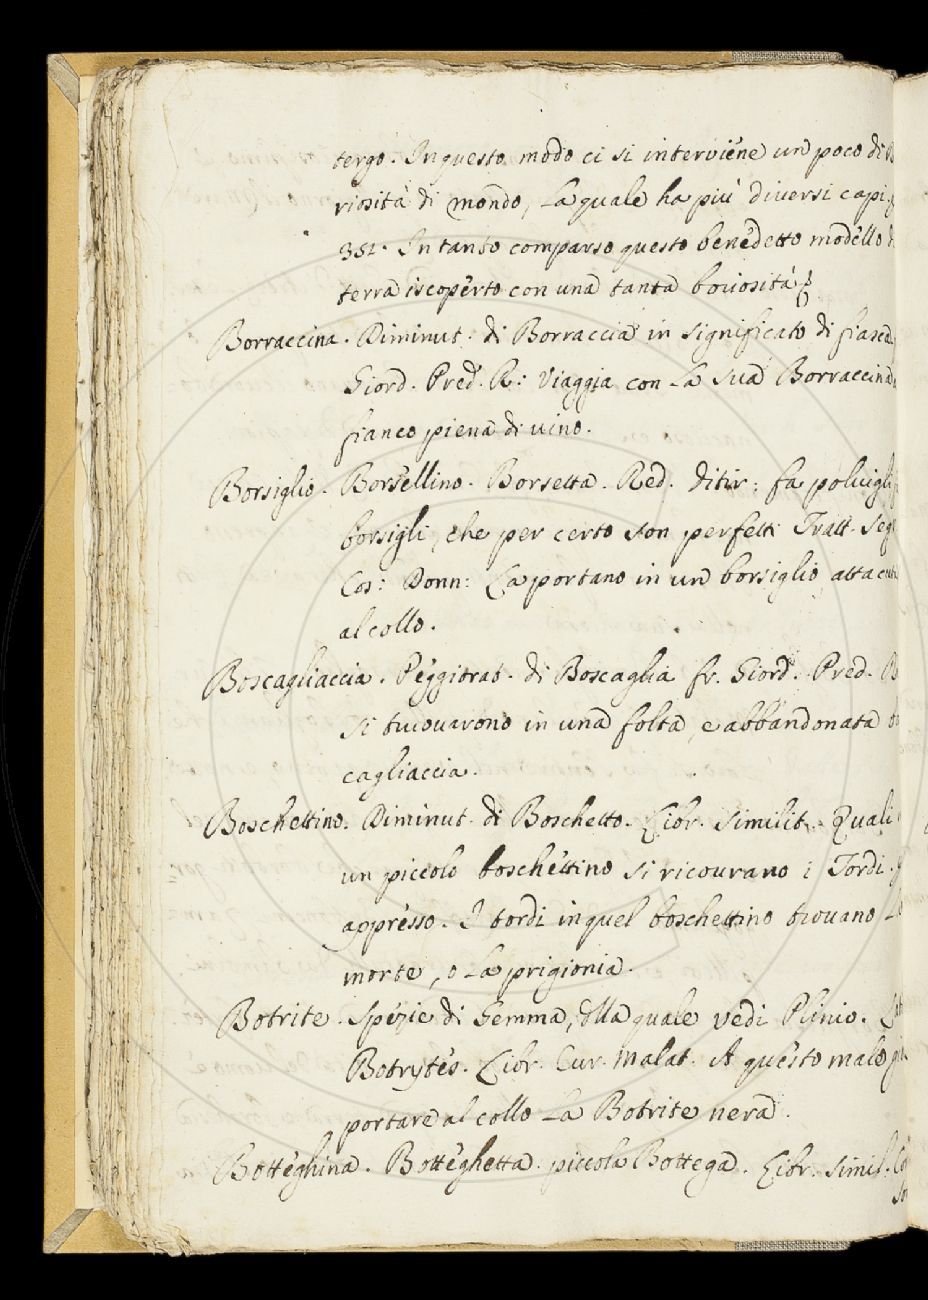 tergo. In questo modo ci si interviene un poco di
riosità di mondo, la quale ha più diversi capi.
351. In tanto comparso questo benedetto modello
terra iscoperto con una tanta boviosità
Borraccina. Diminut. di Borraccia in significato di fiasca
Giord. Pred. R: Viaggia con la sua Borraccina
fianco piena di vino.
Borsiglio. Borsellino. Borsetta. Red. Ditir: fa polvigli
borsigli, che per certo son perfetti Tratt. Seg
Cos: Donn: La portano in un borsiglio attacca
al collo.
Boscagliaccia. Peggiorat. di Boscaglia fr. Giord. Pred.
si truovarono in una folta, e abbandonata
cagliaccia.
Boschettino. Diminut. di Boschetto. Libr. Similit. Quali
un piccolo boschettino si ricovrano i Tordi.
appresso. I tordi in quel boschettino trovano
morte, o la prigionia.
Botrite. Spezie di Gemma, dlla quale vedi Plinio.
Botrytes. Libr. Cur. Malat. A questo male
portare al collo la Botrite nera.
Botteghina. Botteghetta. piccola Bottega. Libr. Simil.